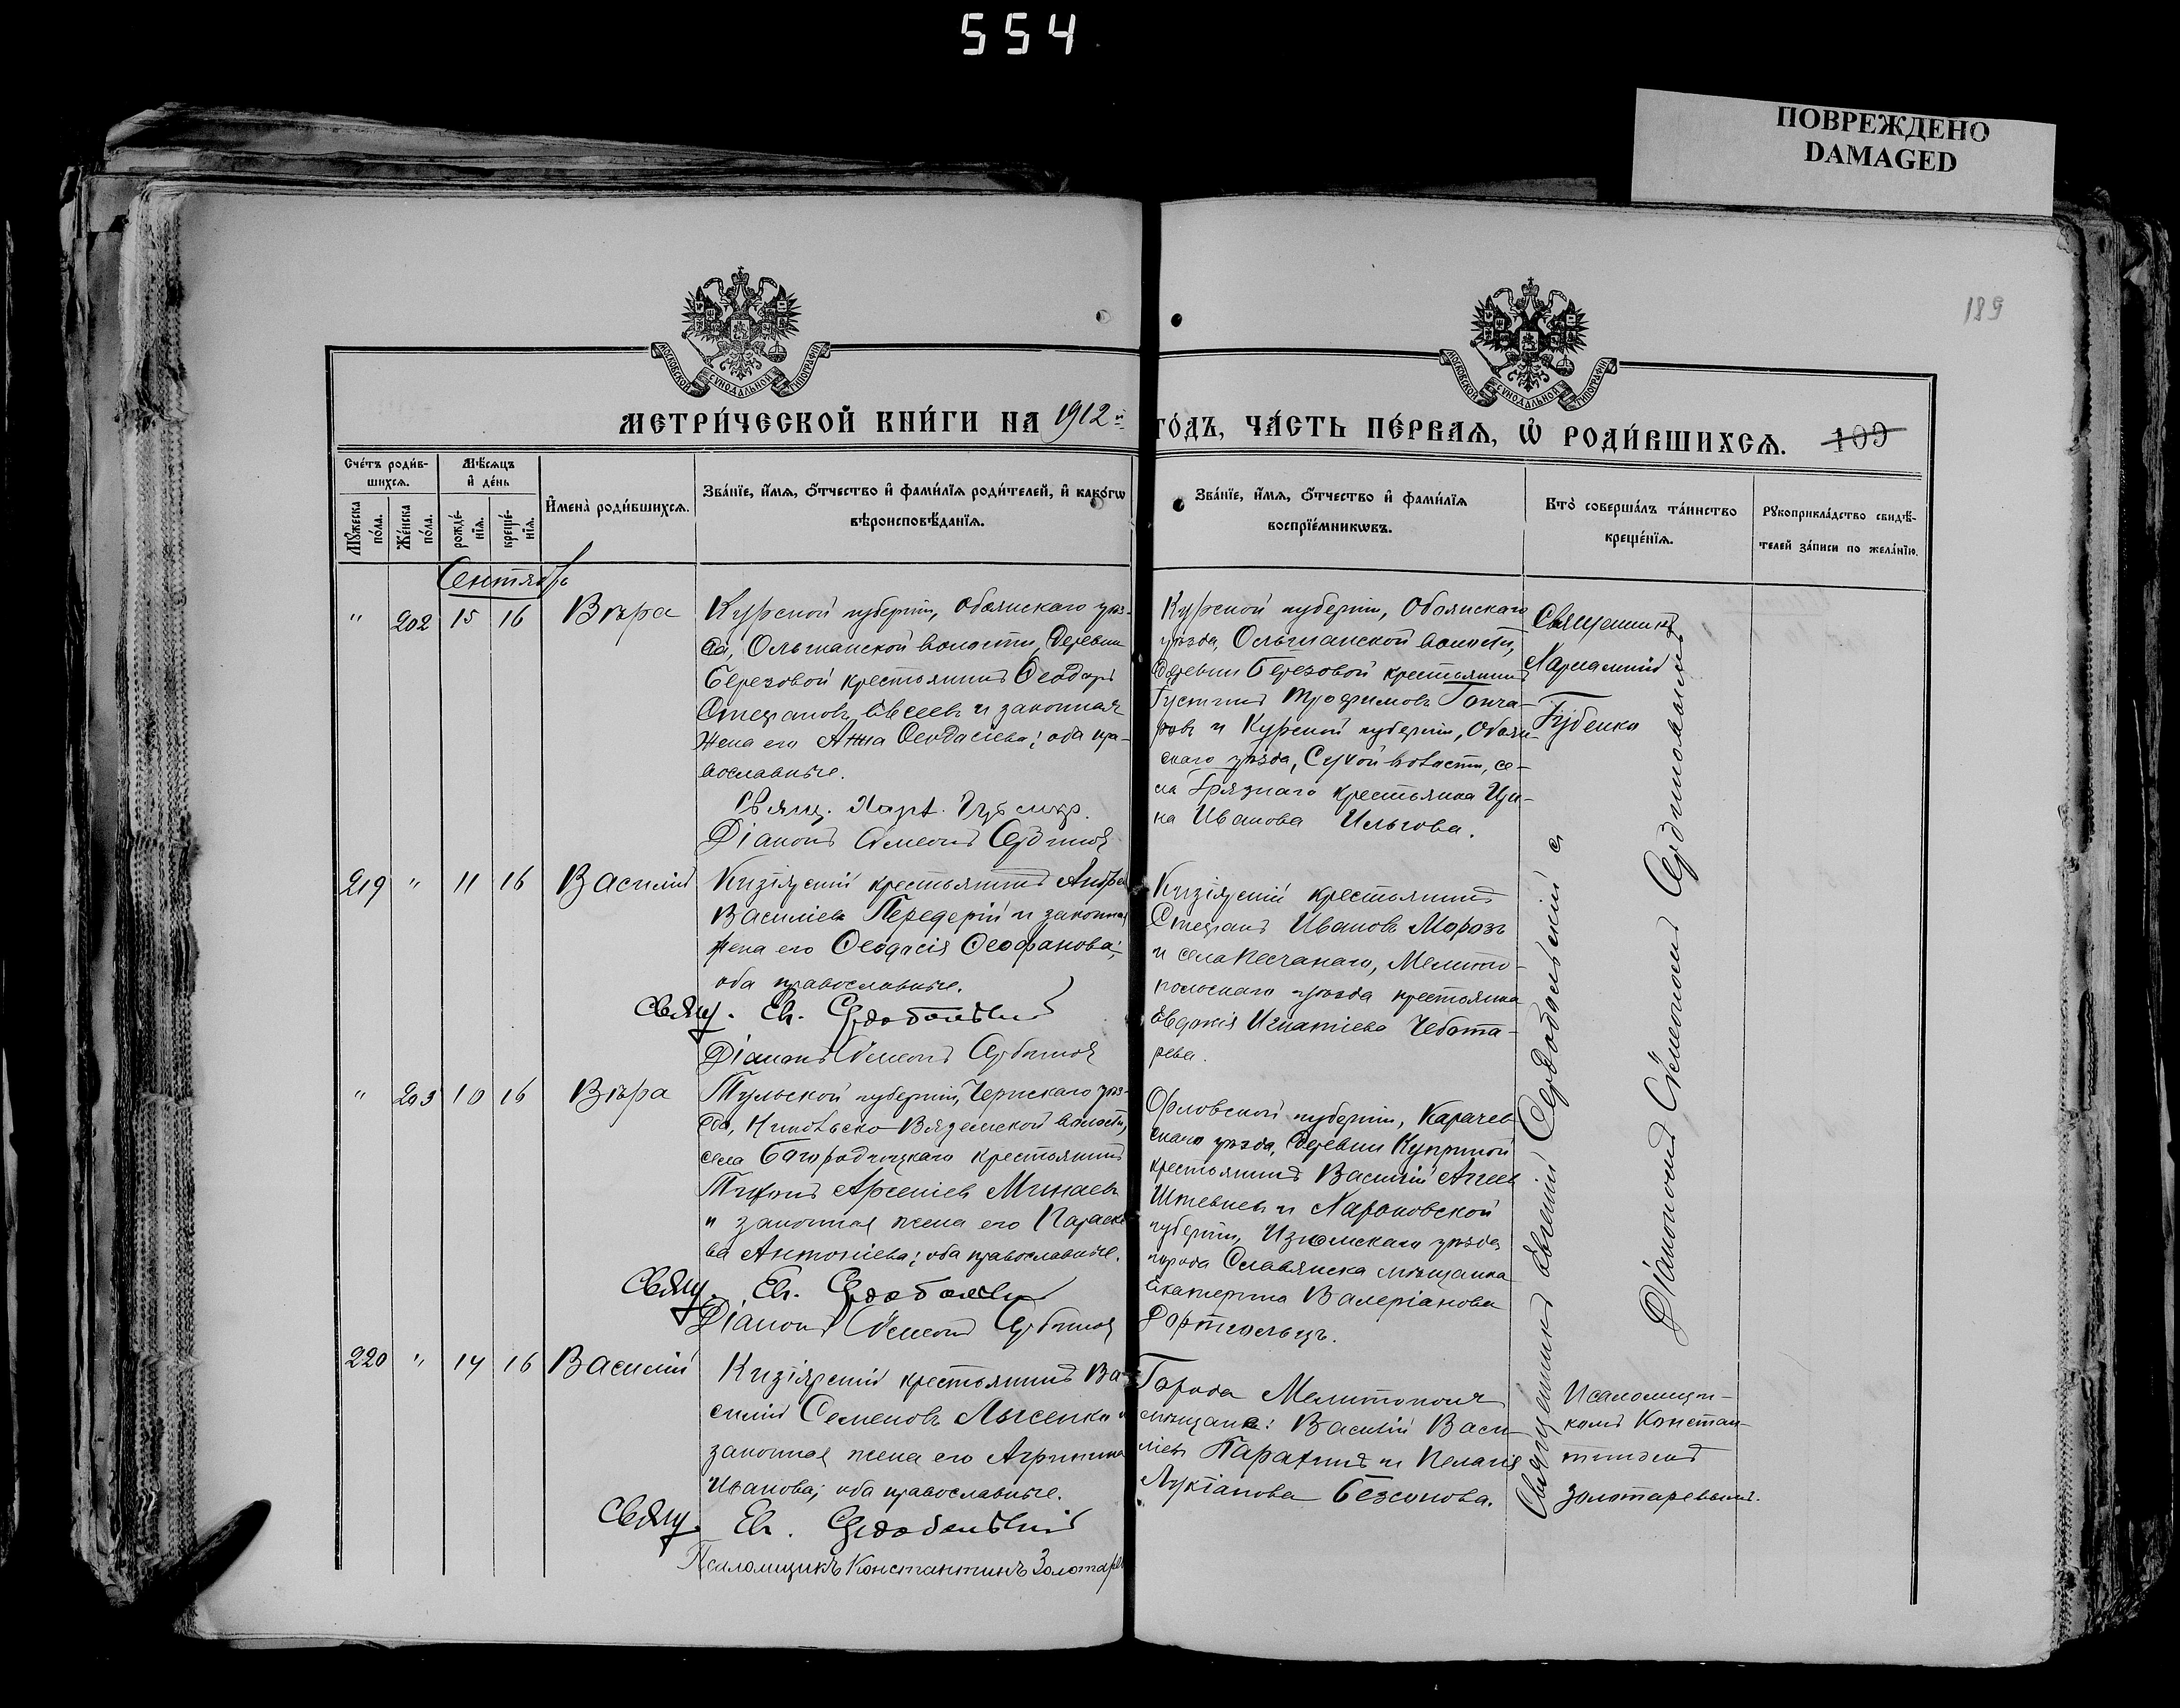 554
ПОВРЕЖДЕНО
DAMAGED
189
МОСКОВСКОЙ СѴНОДАЛЬНОЙ ТИПОГРАФІИ
МОСКОВСКОЙ СѴНОДАЛЬНОЙ ТИПОГРАФІИ
МЕТРИ́ЧЕСКОЙ КНИ́ГИ НА 1912й ГО́ДЪ, ЧА́СТЬ ПЕ́РВАѦ, Ѡ҆ РОДИ́ВШИХСѦ. 109
Сче́тъ роди́в-
шихсѧ.
Мꙋ́жеска
по́ла.
Же́нска
по́ла.
Мѣ́сѧцъ
и҆ де́нь
рожде́-
нїѧ.
креще́-
нїѧ.
И҆мена̀ роди́вшихсѧ.
Зва́нїе, и҆́мѧ, ѻ҆́тчество и҆ фами́лїѧ роди́телей, и҆ како́гѡ
вѣроисповѣ́данїѧ.
Зва́нїе, и҆́мѧ, ѻ҆́тчество и҆ фами́лїѧ
воспрїе́мникѡвъ.
Кто̀ соверша́лъ та́инство
креще́нїѧ.
Рꙋкоприкла́дство свидѣ́-
телей за́писи по жела́нїю.
Сентябрь
" 202 15 16 Вѣра
Курской губерніи, Обоянскаго уѣз-
да, Ольшанской волости, деревни
Березовой крестьянинъ Ѳеодоръ
Стефановъ Евсеевъ и законная
жена его Анна Ѳеодосіева; оба пра-
вославные.
Свящ. Харл. Губенко.
Діаконъ Симеонъ
Курской губерніи, Обоянскаго
уѣзда, Ольшанской волости,
деревни Березовой крестьянинъ
Густинъ Трофимовъ Гонча-
ровъ и Курской губерніи, Обоян-
скаго уѣзда, волости, се-
ла Грязнаго крестьянка
Иванова Ильгова.
Священникъ
Харлампій
Губенко
219 " 11 16 Василій
Кизіярскій крестьянинъ Андрей
Василіевъ Передерій и законная
жена его Ѳеодосія Ѳеофанова;
оба православные.
Свящ. Ев. Сердобольскій
Діаконъ Симеонъ
Кизіярскій крестьянинъ
Стефанъ Ивановъ Морозъ
и села Песчанаго, Мелито-
польскаго уѣзда крестьянка
Евдокія Игнатіева Чебота-
рева.
" 203 10 16 Вѣра
Тульской губерніи, Чернскаго уѣз-
да, Никольско-Вяземской волости,
села Богородицкаго крестьянинъ
Тихонъ Арсеніевъ Минаевъ
и законная жена его Параске-
ва Антоніева; оба православные.
Свящ. Ев. Сердобольскій
Діаконъ Симеонъ
Орловской губерніи, Карачев-
скаго уѣзда, деревни Куприной
крестьянинъ Василій Агеевъ
Штевневъ и Харьковской
губерніи, Изюмскаго уѣзда
города Славянска мѣщанка
Екатерина Валеріанова
220 " 14 16 Василій
Кизіярскій крестьянинъ Ва-
силій Семеновъ Лысенко и
законная жена его Агрипина
Иванова; оба православные.
Свящ. Ев. Сердобольскій
Псаломщикъ Константинъ Золотаре
Города Мелитополя
мѣщане: Василій Васи-
ліевъ Парахинъ и Пелагія
Лукіанова Безсонова.
Священникъ Евгеній Сердобольскій съ
Діакономъ Симеономъ
Псаломщи-
комъ Констан-
тиномъ
Золотаревымъ.